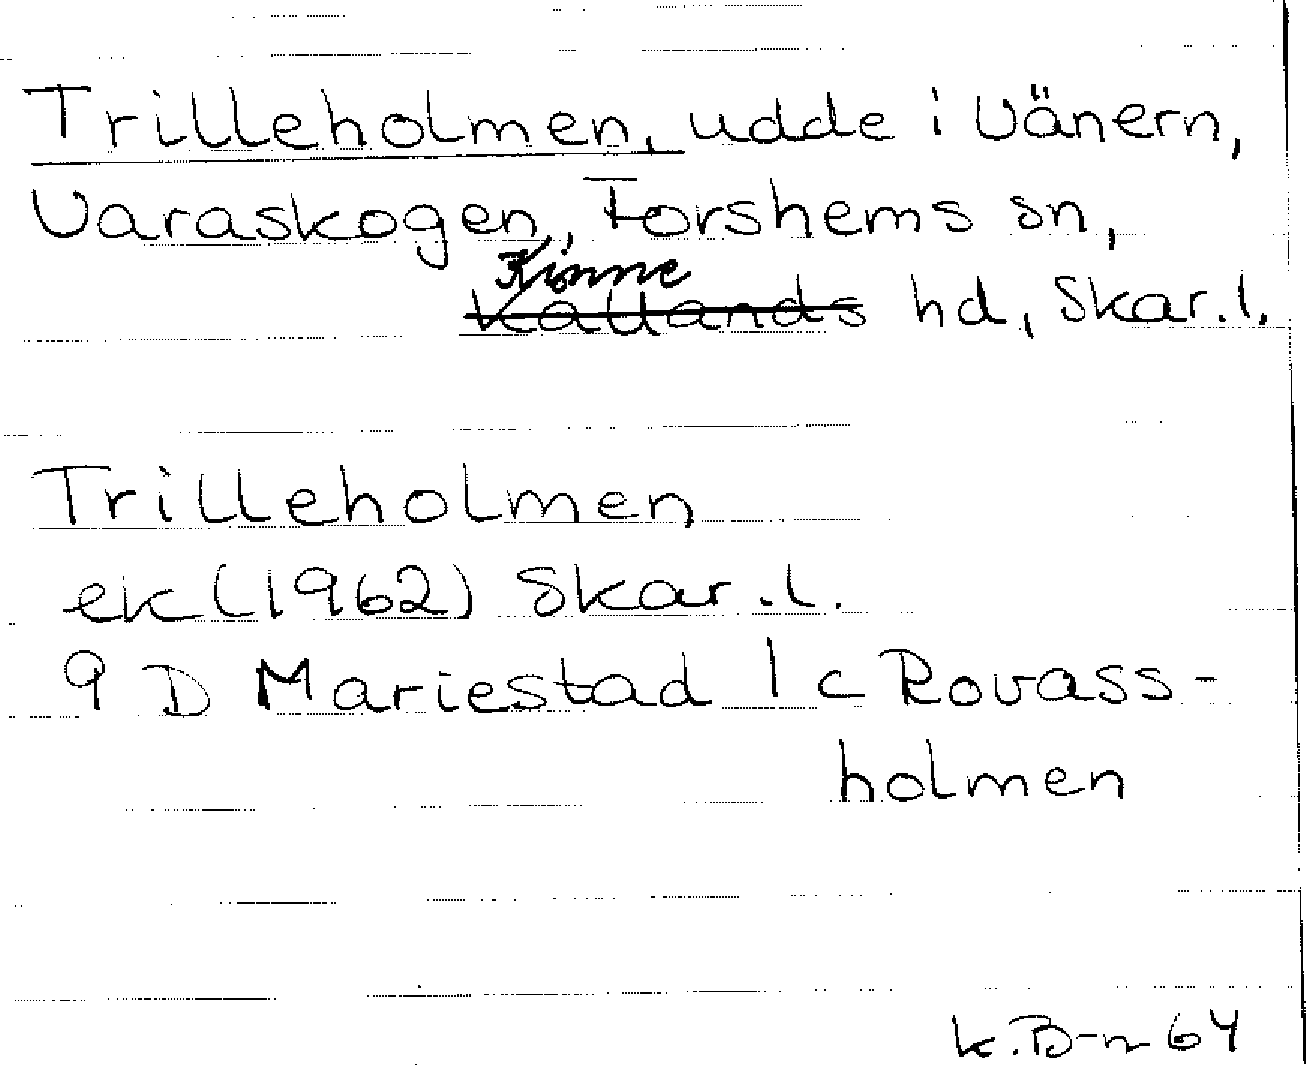 Trilleholmen, udde i Vänern,
Varaskogen, Forshems sn,
Kinne
Kållands hd, Skar.l.
Trilleholmen
ek (1962) Skar.l.
9 D Mariestad 1 c Rovass-
holmen
K.B-n 64